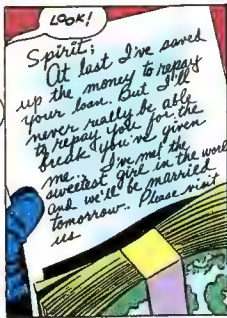 LOOK!
Spirit;
At last I've saved
up the money to repay
your loan. But I'll
never really be able
to repay you for the
break you've given
me.. I've met the
sweetest girl in the world
and we'll be married
tomorrow.. Please visit
us